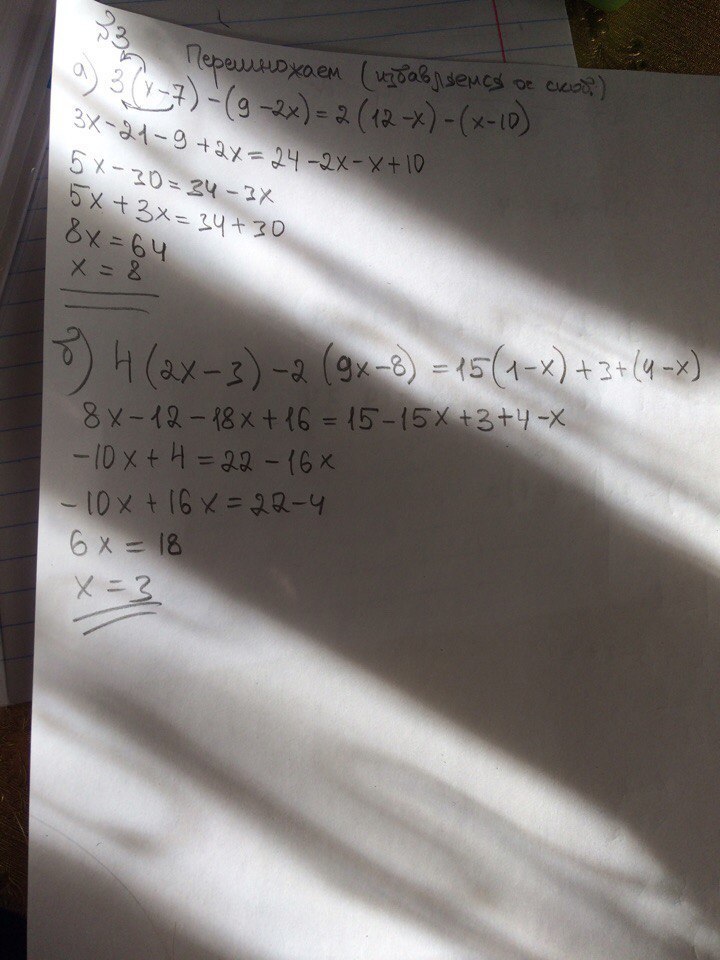 33
Перемножаем (избавляемся от скоб.)
а) 3(x-7)-(9-2x)=2(12-x)-(x-10)
3x-21-9+2x=24-2x-x+10
5x-30=34-3x
5x+3x=34+30
8x=64
x=8
б) 4(2x-3)-2(9x-8)=15(1-x)+3+(4-x)
8x-12-18x+16=15-15x+3+4-x
-10x+4=22-16x
-10x+16x=22-4
6x=18
x=3